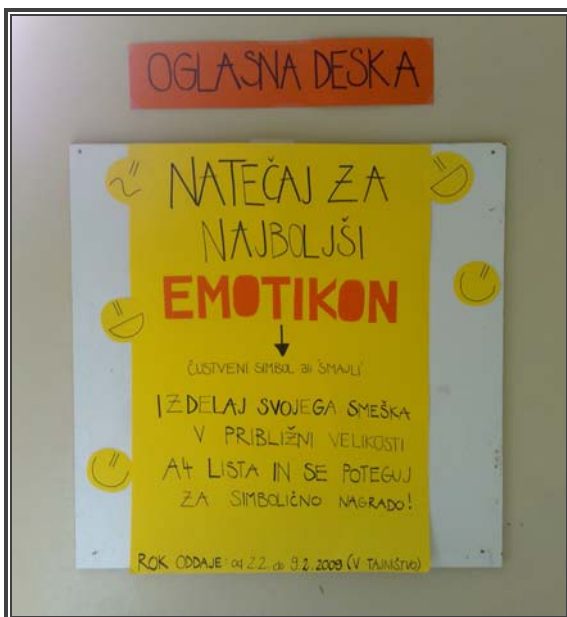 OGLASNA DESKA
NATEČAJ ZA
NAJBOLJŠI
EMOTIKON
ČUSTVENI SIMBOL ali 'SMAJLI'
IZDELAJ SVOJEGA SMEŠKA
V PRIBLIŽNI VELIKOSTI
A4 LISTA IN SE POTEGUJ
ZA SIMBOLIČNO NAGRADO!
ROK ODDAJE: od 2.2. do 9.2.2009 (V TAJNIŠTVO)